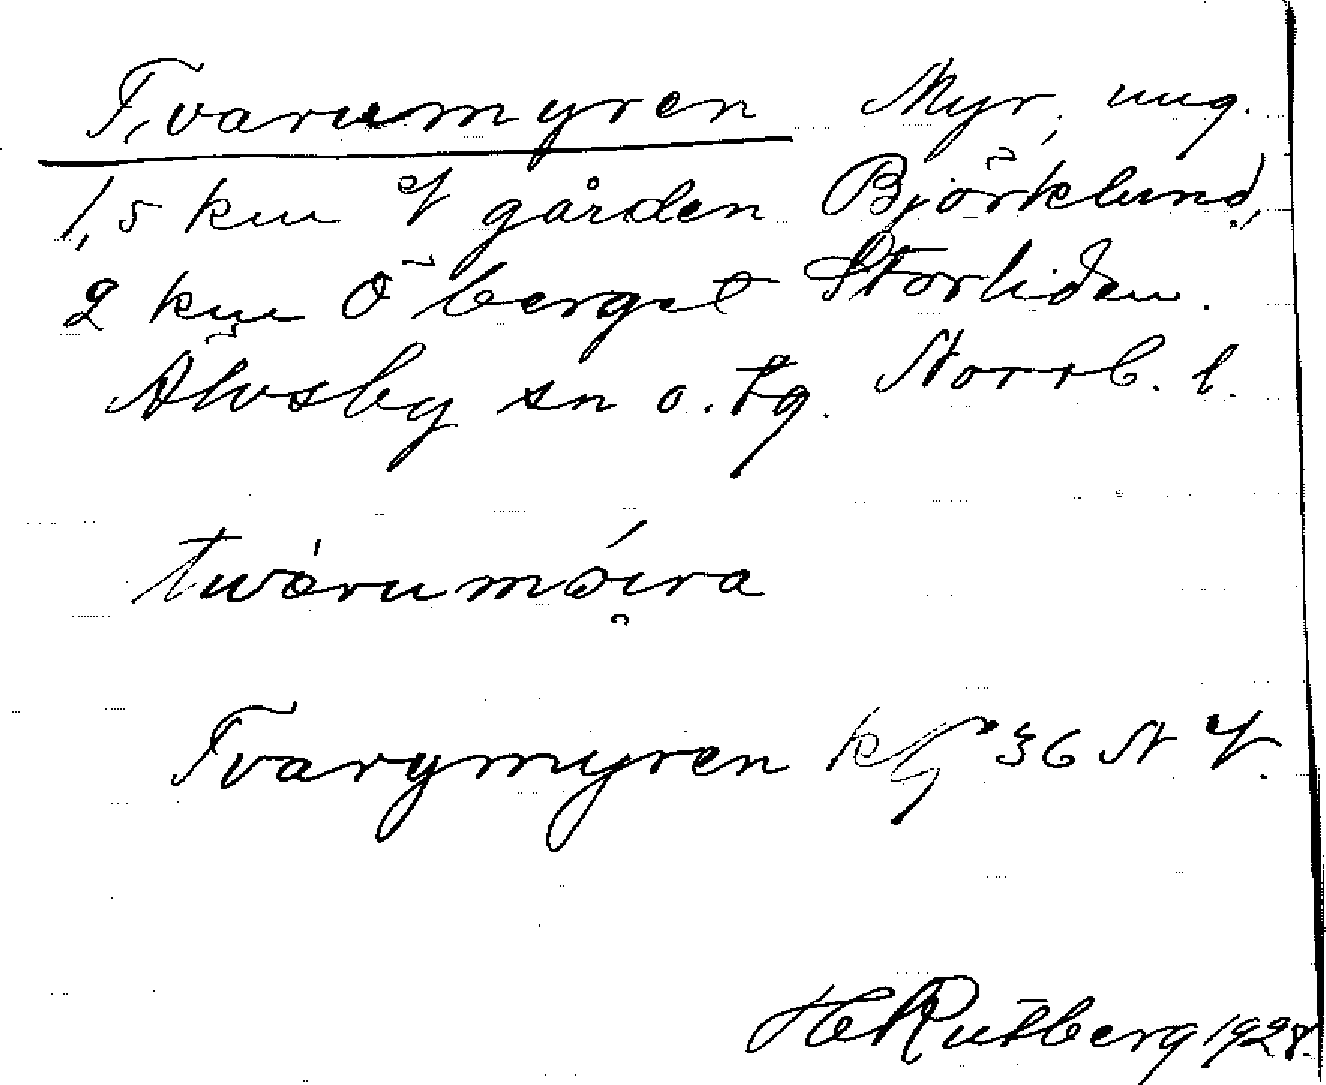 Tvarumyren Myr, ung.
1,5 km V gården Björklund,
2 km Ö berget Storliden.
Älvsby sn o. tg. Norrb. l.
twàrumóira
Tvarymyren kfg 36 N V.
HERutberg 1928.